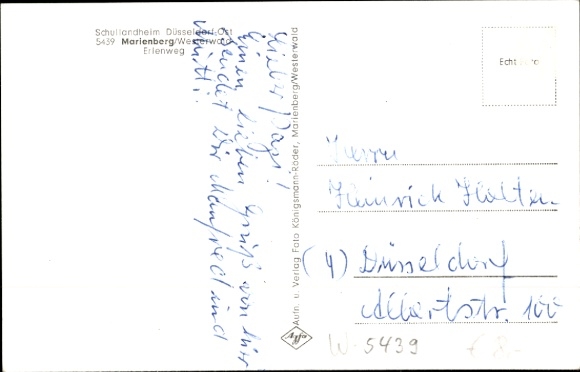 Schullandheim Düsseldorf-Ost
5439 Marienberg/Westerwald
Erlenweg
Lieber Papi!
Einen lieben Gruß von hier
sendet Dir Manfred und
Mutti.
Aufn. u. Verlag Foto Königsmann-Röder, Marienberg/Westerwald
Agfa
Echt Foto
Herrn
Heinrich Holte
(4) Düsseldorf
Albertstr. 100
W-5439
€ 8,-